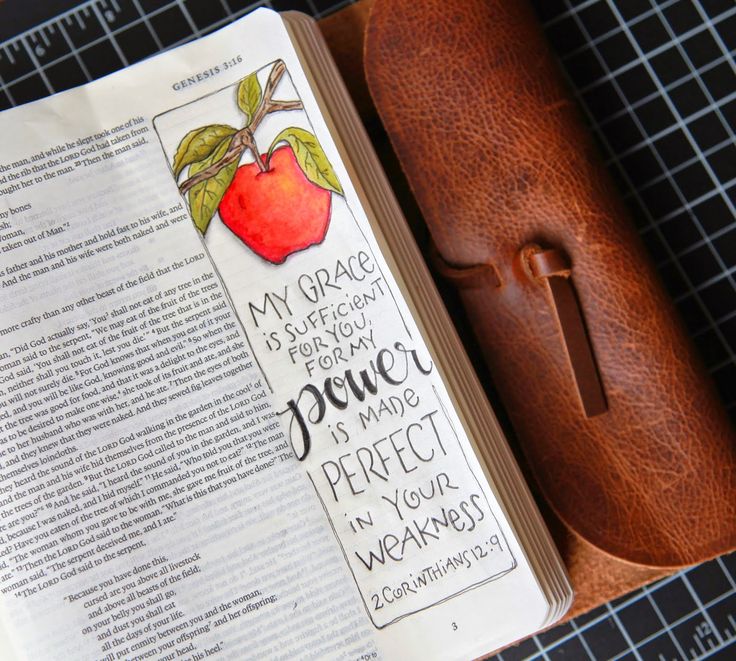 GENESIS 3:16
the man, and while he slept took one of his
the rib that the LORD God had taken from
ught her to the man. 23 Then the man said,
my bones
sh;
Woman,
taken out of Man."
s father and his mother and hold fast to his wife, and
And the man and his wife were both naked and were
more crafty than any other beast of the field that the LORD
an, "Did God actually say, 'You shall not eat of any tree in the
woman said to the serpent, "We may eat of the fruit of the trees
God said, 'You shall not eat of the fruit of the tree that is in the
neither shall you touch it, lest you die.'" 4 But the serpent said
will not surely die. 5 For God knows that when you eat of it your
and you will be like God, knowing good and evil." 6 So when the
t the tree was good for food, and that it was a delight to the eyes, and
as to be desired to make one wise, she took of its fruit and ate, and she
o her husband who was with her, and he ate. 7 Then the eyes of both
, and they knew that they were naked. And they sewed fig leaves together
mselves loincloths.
heard the sound of the LORD God walking in the garden in the cool of
and the man and his wife hid themselves from the presence of the LORD God
the trees of the garden. 9 But the LORD God called to the man and said to him,
re are you?" 10 And he said, "I heard the sound of you in the garden, and I was
because I was naked, and I hid myself." 11 He said, "Who told you that you were
d? Have you eaten of the tree of which I commanded you not to eat?" 12 The man
"The woman whom you gave to be with me, she gave me fruit of the tree, and
ate." 13 Then the LORD God said to the woman, "What is this that you have done?" The
woman said, "The serpent deceived me, and I ate."
14 The LORD God said to the serpent,
"Because you have done this,
cursed are you above all livestock
and above all beasts of the field;
on your belly you shall go,
and dust you shall eat
all the days of your life.
will put enmity between you and the woman,
between your offspring and her offspring;
your head,
his heel."
MY GRACE
IS SUFFICIENT
FOR YOU,
FOR MY
power
IS MADE
PERFECT
IN YOUR
WEAKNESS
2 CORINTHIANS 12:9
3
12